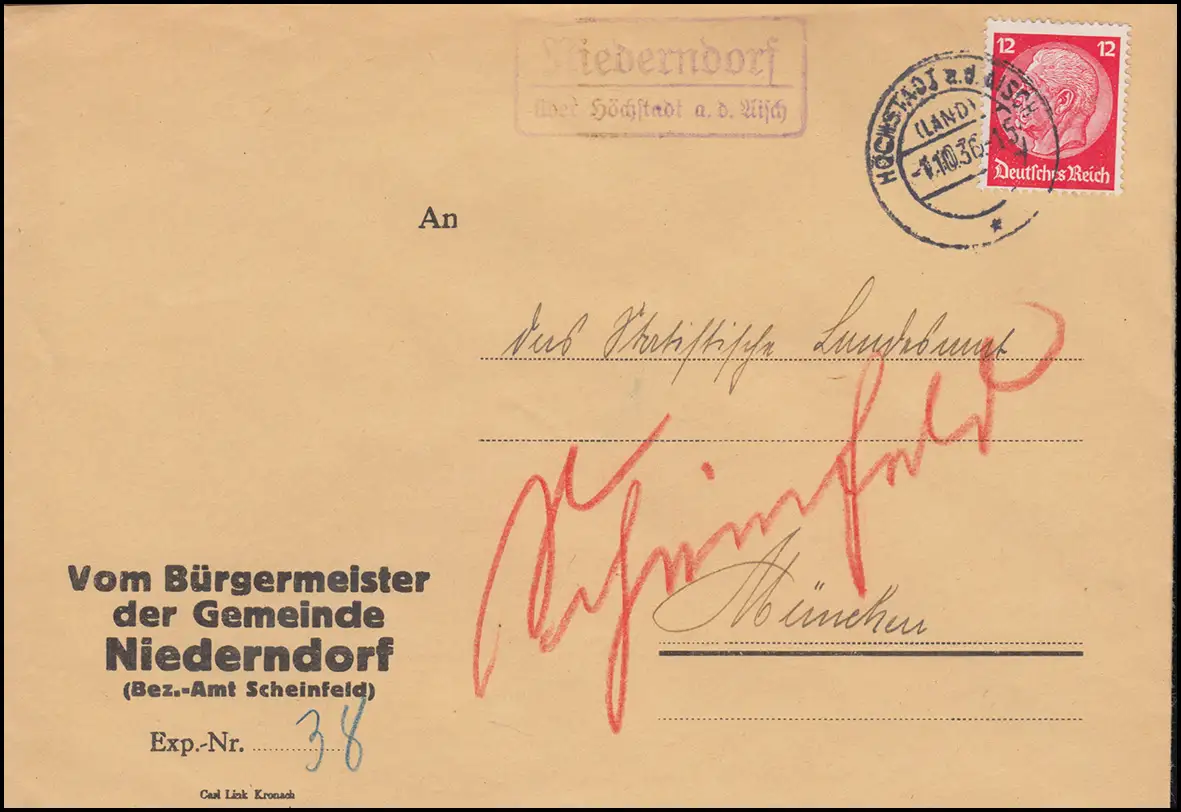 Niederndorf
über Höchstadt a. d. Aisch
HÖCHSTADT a. d. AISCH
(LAND)
-1.10.36.-15
12 12
Deutsches Reich
An
das Statistische Landesamt
Scheinfeld
München
Vom Bürgermeister
der Gemeinde
Niederndorf
(Bez.-Amt Scheinfeld)
Exp.-Nr. 38
Carl Link Kronach